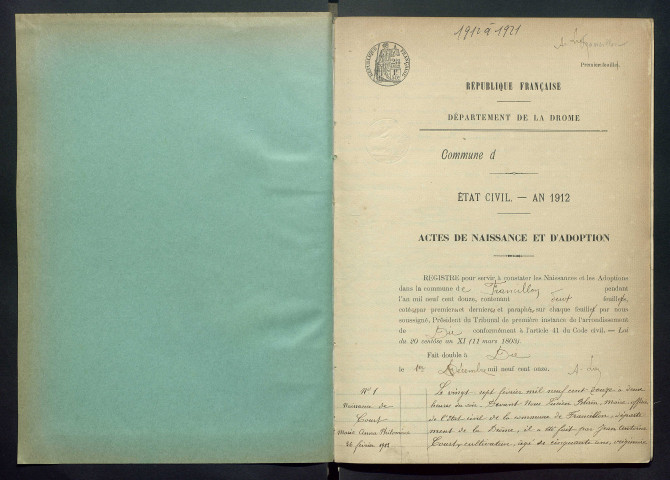 1912 à 1921
Premier feuillet.
RÉPUBLIQUE FRANÇAISE
RÉPUBLIQUE FRANÇAISE
DÉPARTEMENT DE LA DROME
Commune d
ÉTAT CIVIL. — AN 1912
ACTES DE NAISSANCE ET D'ADOPTION
REGISTRE pour servir à constater les Naissances et les Adoptions
dans la commune de pendant
l'an mil neuf cent douze, contenant feuillets
cotés par premier et dernier, et paraphés sur chaque feuillet par nous
soussigné, Président du Tribunal de première instance de l'arrondissement
de Die conformément à l'article 41 du Code civil. — Loi
du 20 ventôse an XI (11 mars 1803).
Fait double à Die
le 1er Décembre mil neuf cent onze.
N° 1
Naissance de
Court
Marie Anna Philomène
26 février 1912
Le vingt-sept février mil neuf cent douze à deux
heures du soir, devant Nous maire officier
de l'état civil de la commune de départe
ment de la Drôme, il a été fait par Jean
Court, cultivateur, âgé de cinquante ans,